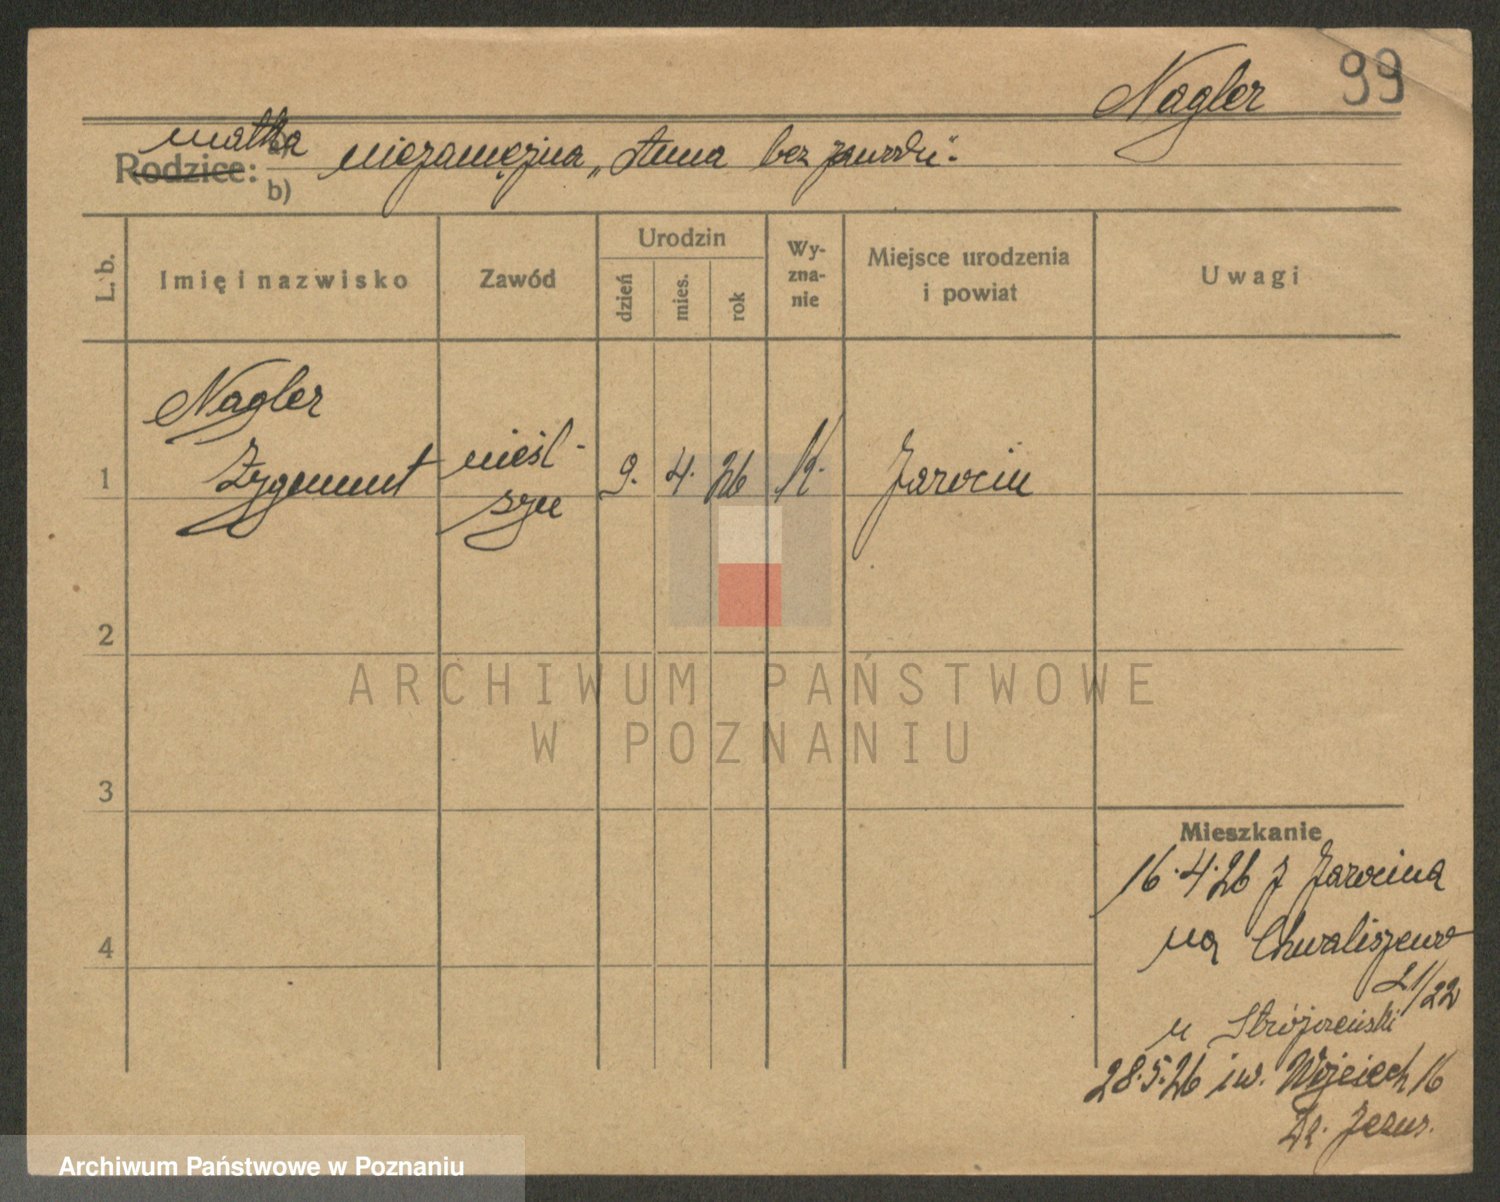 Nagler 99
matka niezamężna „Anna bez zawodu".
Rodzice: a)
b)
L. b.
Imię i nazwisko
Zawód
Urodzin
dzień
mies.
rok
Wy-
zna-
nie
Miejsce urodzenia
i powiat
Uwagi
Nagler
1 Zygmunt 9. 4. 26 k. Jarocin
2
3
4
ARCHIWUM PAŃSTWOWE
W POZNANIU
Mieszkanie
16.4.26 z Jarocina
na Chwaliszewo
21/22
u
28.5.26 św. Wojciech 16
Dz. Jezus.
Archiwum Państwowe w Poznaniu